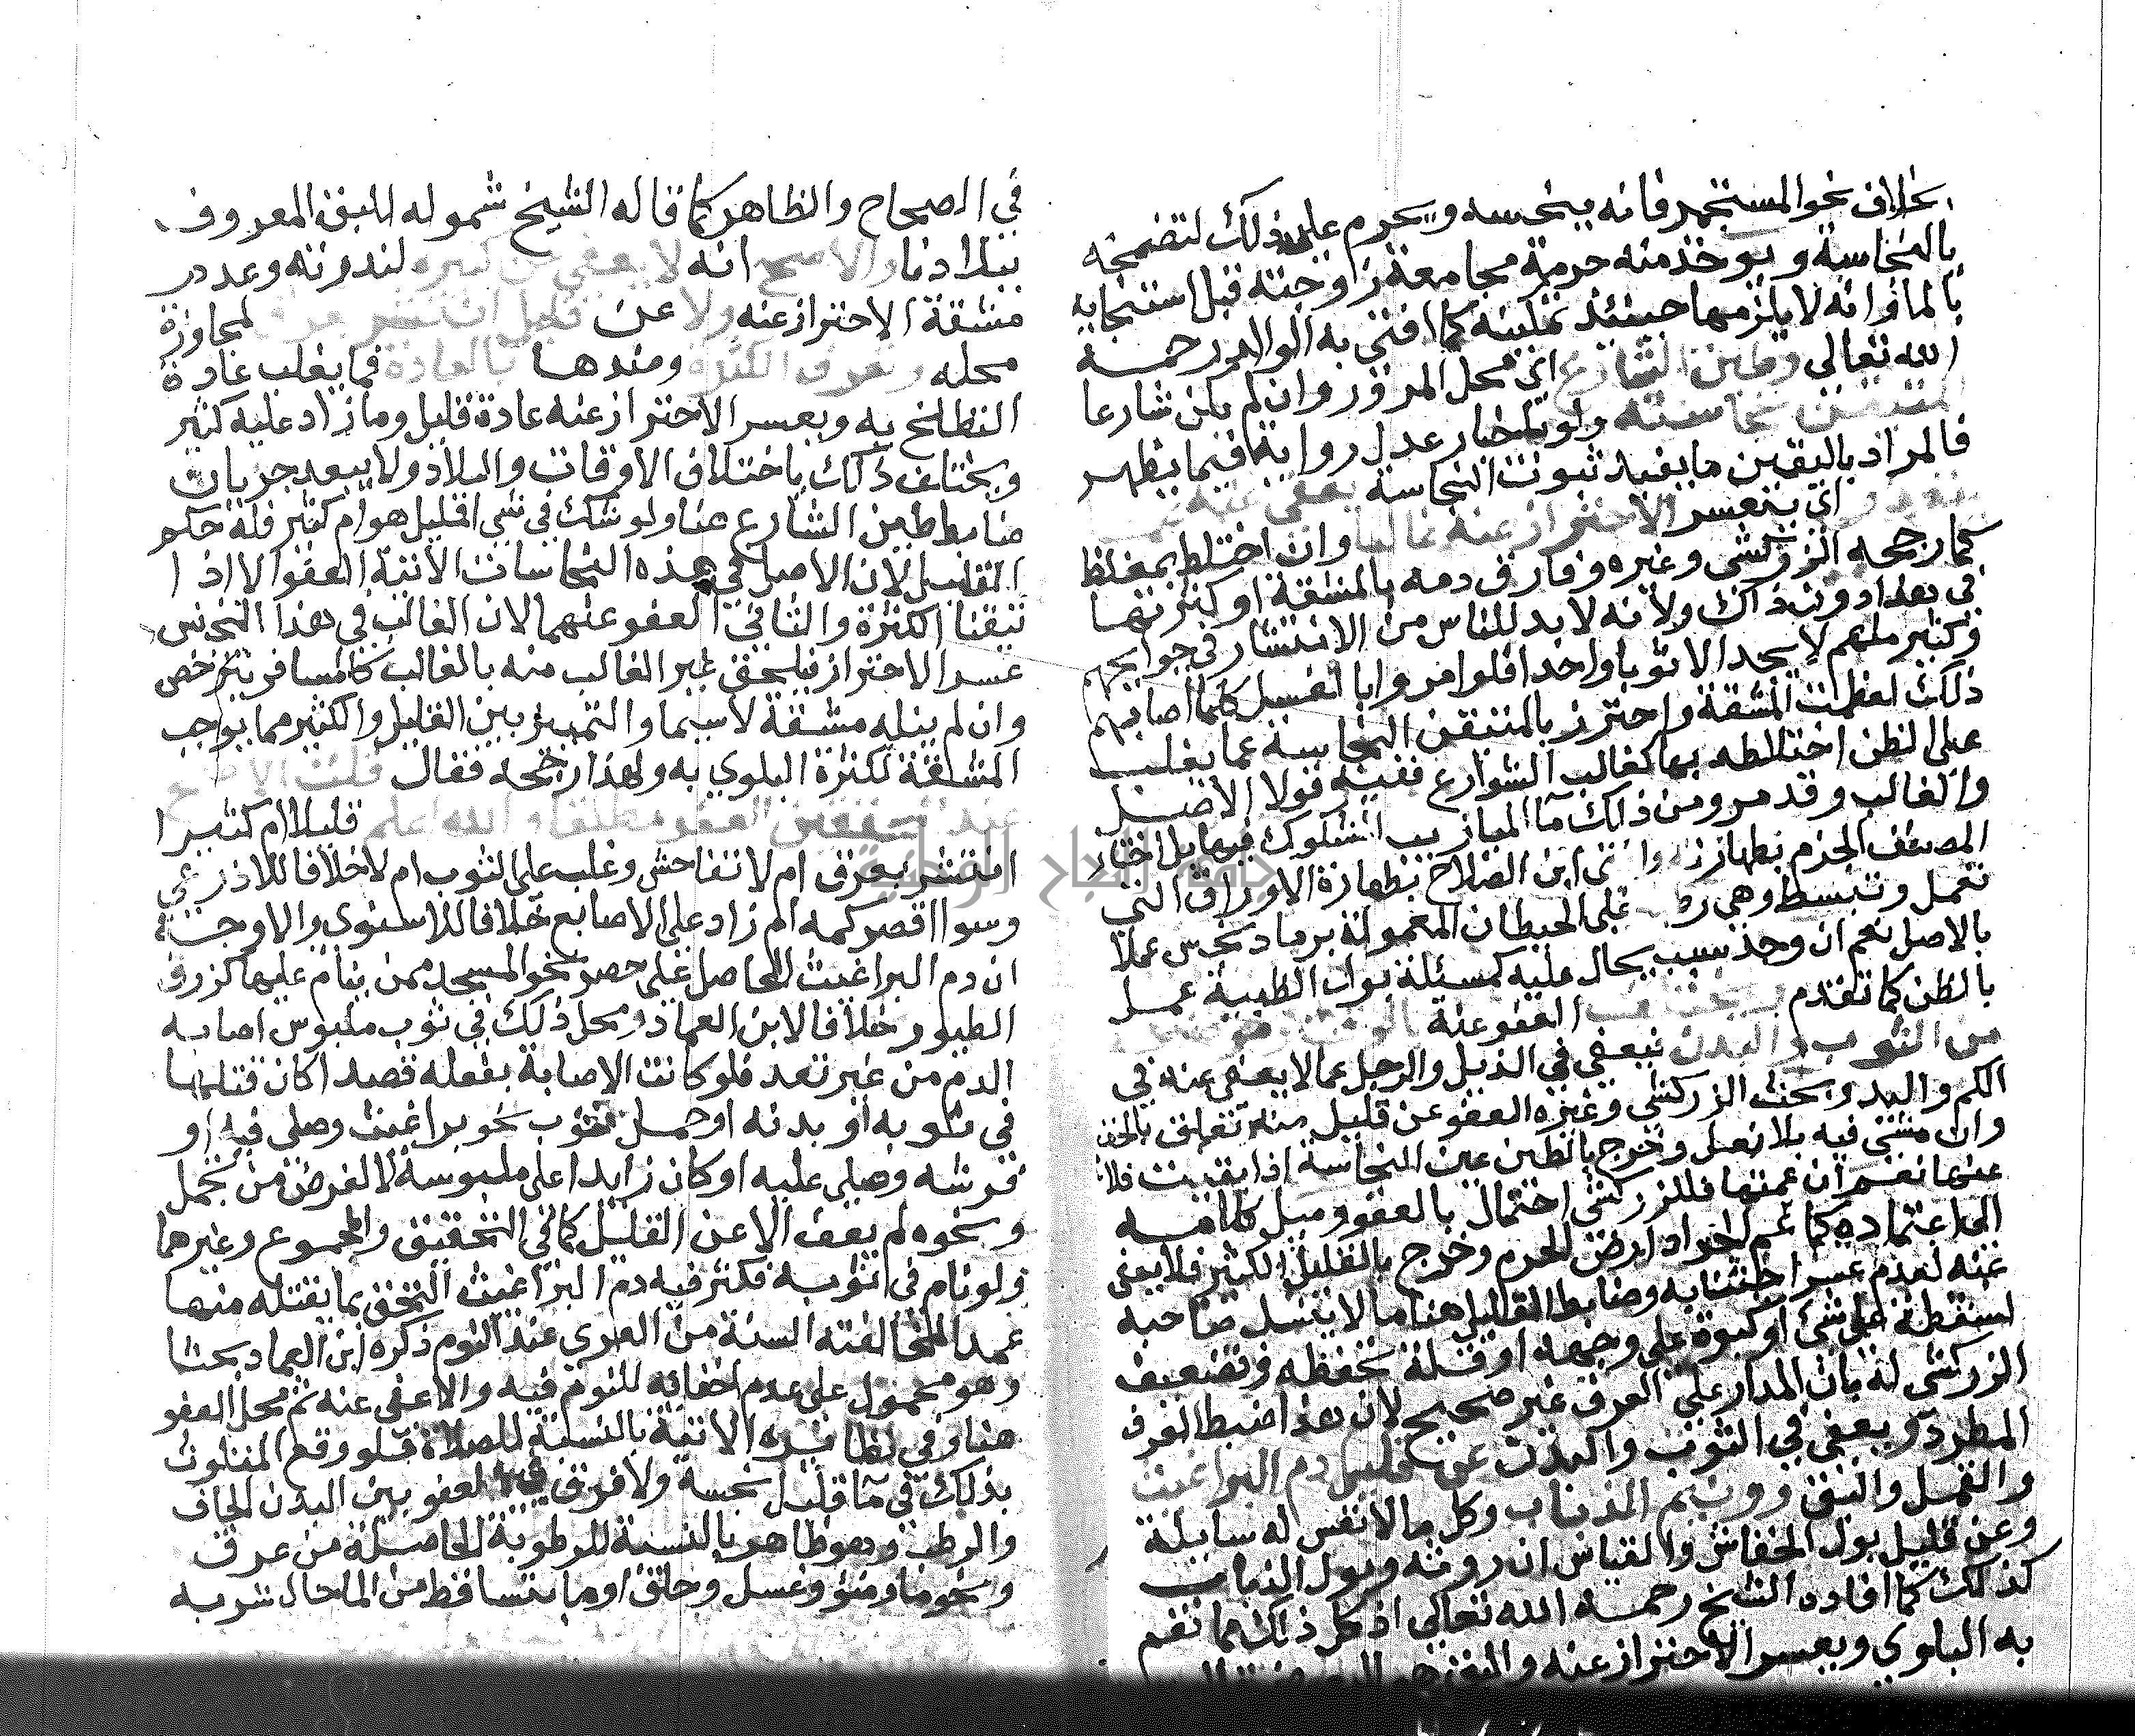 بخلاف نحو المستجمر فانه ينجسه ويحرم عليه ذلك لتضمخه
بالنجاسة ويوخذ منه حرمة مجامعة زوجته قبل استنجايه
بالما وانه لا يلزمها حينئذ تمكينه كما افتى به الوالد رحمه
الله تعالى وطين الشارع اي محل المرور وان لم يكن شارعا
المتيقن نجاسته ولو باخبار عدل رواية فيما يظهر
فالمراد باليقين ما يفيد ثبوت النجاسة يعفى عنه
اي يتعسر الاحتراز عنه غالبا وان اختلط بمغلظ
كما رجحه الزركشي وغيره وفارق دمه بالمشقة او كثرتها
في هذا دون ذاك ولانه لا بد للناس من الانتشار في حوايجهم
وكثير منهم لا يجد الا ثوبا واحدا فلو امروا بالغسل كلما اصابهم
ذلك لعظمت المشقة واحترز بالمتيقن النجاسة عما يغلب
على الظن اختلاطه بها كغالب الشوارع ففيه قولا الاصل
والغالب وقد مر ومن ذلك ما الميازيب المشكوك فيها بل اختار
المصنف الجزم بطهارته وافتى ابن الصلاح بطهارة الاوراق التي
تعمل وتبسط وهي رطبة على الحيطان المعمولة برماد نجس عملا
بالاصل نعم ان وجد سبب يحال عليه كمسئلة بول الظبية عمل
بالظن كما تقدم ويختلف العفو عنه بالوقت وموضعه
من الثوب والبدن فيعفى في الذيل والرجل عما لا يعفى عنه في
الكم واليد وبحث الزركشي وغيره العفو عن قليل منه تعلق بالخف
وان مشى فيه بلا نعل وخرج بالطين عين النجاسة اذا بقيت فلا
عنها نعم ان عمتها فللزركشي احتمال بالعفو وميل كلامه
الى اعتماده كما لو عم الجراد ارض الحرم وخرج بالقليل الكثير فلا يعفى
عنه لعدم عسر اجتنابه وضابط القليل هنا ما لا ينسب صاحبه
لسقطة على شئ او كبوة على وجهه او قلة تحفظه وتضعيف
الزركشي له بان المدار على العرف غير صحيح لان هذا ضبط العرف
المطرد ويعفى في الثوب والبدن عن قليل دم البراغيث
والقمل والبق وونيم الذباب وكل ما لا نفس له سايلة
وعن قليل بول الخفاش والقياس ان روثه وبول الذباب
كذلك كما افاده الشيخ رحمه الله تعالى اذ كل ذلك مما تعم
به البلوى ويعسر الاحتراز عنه
في الصحاح والظاهر كما قاله الشيخ شموله للبق المعروف
ببلادنا والاصح انه لا يعفى عن كثيره لندرته وعدم
مشقة الاحتراز عنه ولا عن قليل انتشر بعرق لمجاوزة
محله وتعرف الكثرة وضدها بالعادة فما يغلب عادة
التطلخ به ويعسر الاحتراز عنه عادة قليل وما زاد عليه كثير
ويختلف ذلك باختلاف الاوقات والبلاد ولا يبعد جريان
ضابط طين الشارع هنا ولو شك في شي اقليل هو ام كثير فله حكم
القليل لان الاصل في هذه النجاسات الاتية العفو الا اذا
تيقنا الكثرة والثاني العفو عنهما لان الغالب في هذا النجس
عسر الاحتراز فيلحق غير الغالب منه بالغالب كالمسافر يترخص
وان لم ينله مشقة لا سيما والتمييز بين القليل والكثير مما يوجب
المشقة لكثرة البلوى به ولهذا رجحه فقال قلت الاصح
عند المحققين العفو مطلقا والله اعلم قليلا ام كثيرا
انتشر بعرق ام لا تفاحش وغلب على الثوب ام لا خلافا للاذرعي
وسوا اقصر كمه ام زاد على الاصابع خلافا للاسنوي والاوجه
ان دم البراغيث الحاصل على حصر نحو المسجد ممن ينام عليها كزرق
الطيور خلافا لابن العماد ومحل ذلك في ثوب ملبوس اصابه
الدم من غير تعد فلو كانت الاصابة بفعله قصدا كان قتلها
في ثوبه او بدنه او حمل ثوب نحو براغيث وصلى فيه او
فرشه وصلى عليه او كان زايدا على ملبوسه لا لغرض من تجمل
ونحوه لم يعف الا عن القليل كما في التحقيق والمجموع وغيرهما
ولو نام في ثوبه فكثر فيه دم البراغيث التحق بما يقتله منها
عمدا لمخالفته السنة من العري عند النوم ذكره ابن العماد بحثا
وهو محمول على عدم احتياجه للنوم فيه والا عفي عنه ثم محل العفو
هنا وفي نظايره الاتية بالنسبة للصلاة فلو وقع المتلوث
بذلك في ما قليل نجسه ولا فرق في العفو بين البدن الجاف
والرطب وهو ظاهر بالنسبة للرطوبة الحاصلة من عرق
ونحو ما وضوء وغسل وحلق او ما يتساقط من الما حال شربه
جامعة النجاح الوطنية